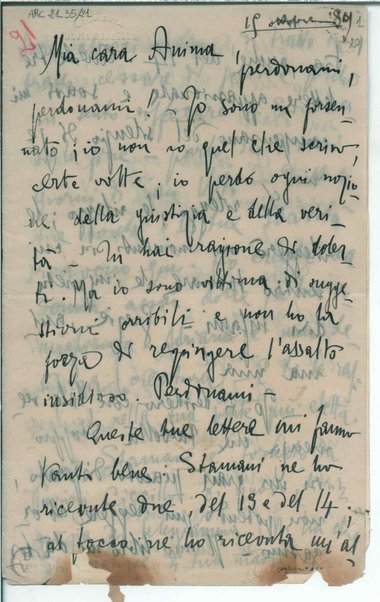 ARC 21.35/21
15 ottobre 91
Mia cara Anima, perdonami,
perdonami! Io sono un forsen-
nato; io non so quel che scrivo,
certe volte; io perdo ogni nozio-
ne della giustizia e della veri-
tà — Tu hai ragione di doler-
ti. Ma io sono vittima di sugge-
stioni orribili e non ho la
forza di respingere l'assalto
insidioso. Perdonami —
Queste tue lettere mi fanno
tanto bene. Stamani ne ho
ricevute due, del 13 e del 14;
al tocco ne ho ricevuta un'al